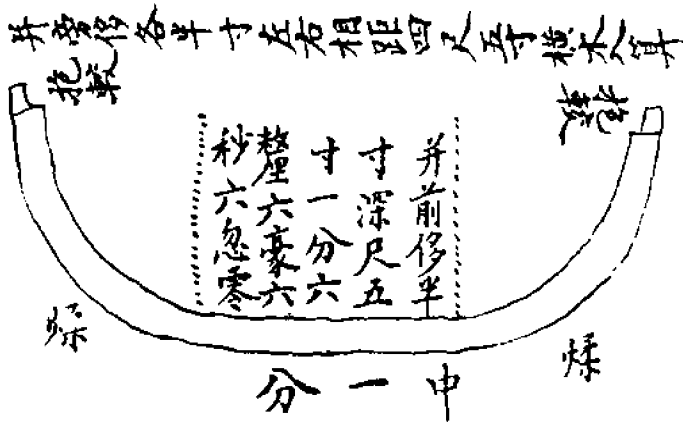 并旁侈各半寸左右相距四尺五寸木
抱
抱
并前侈半
寸深尺五
寸一分六
釐六豪六
秒六忽零
煣
煣
中一分